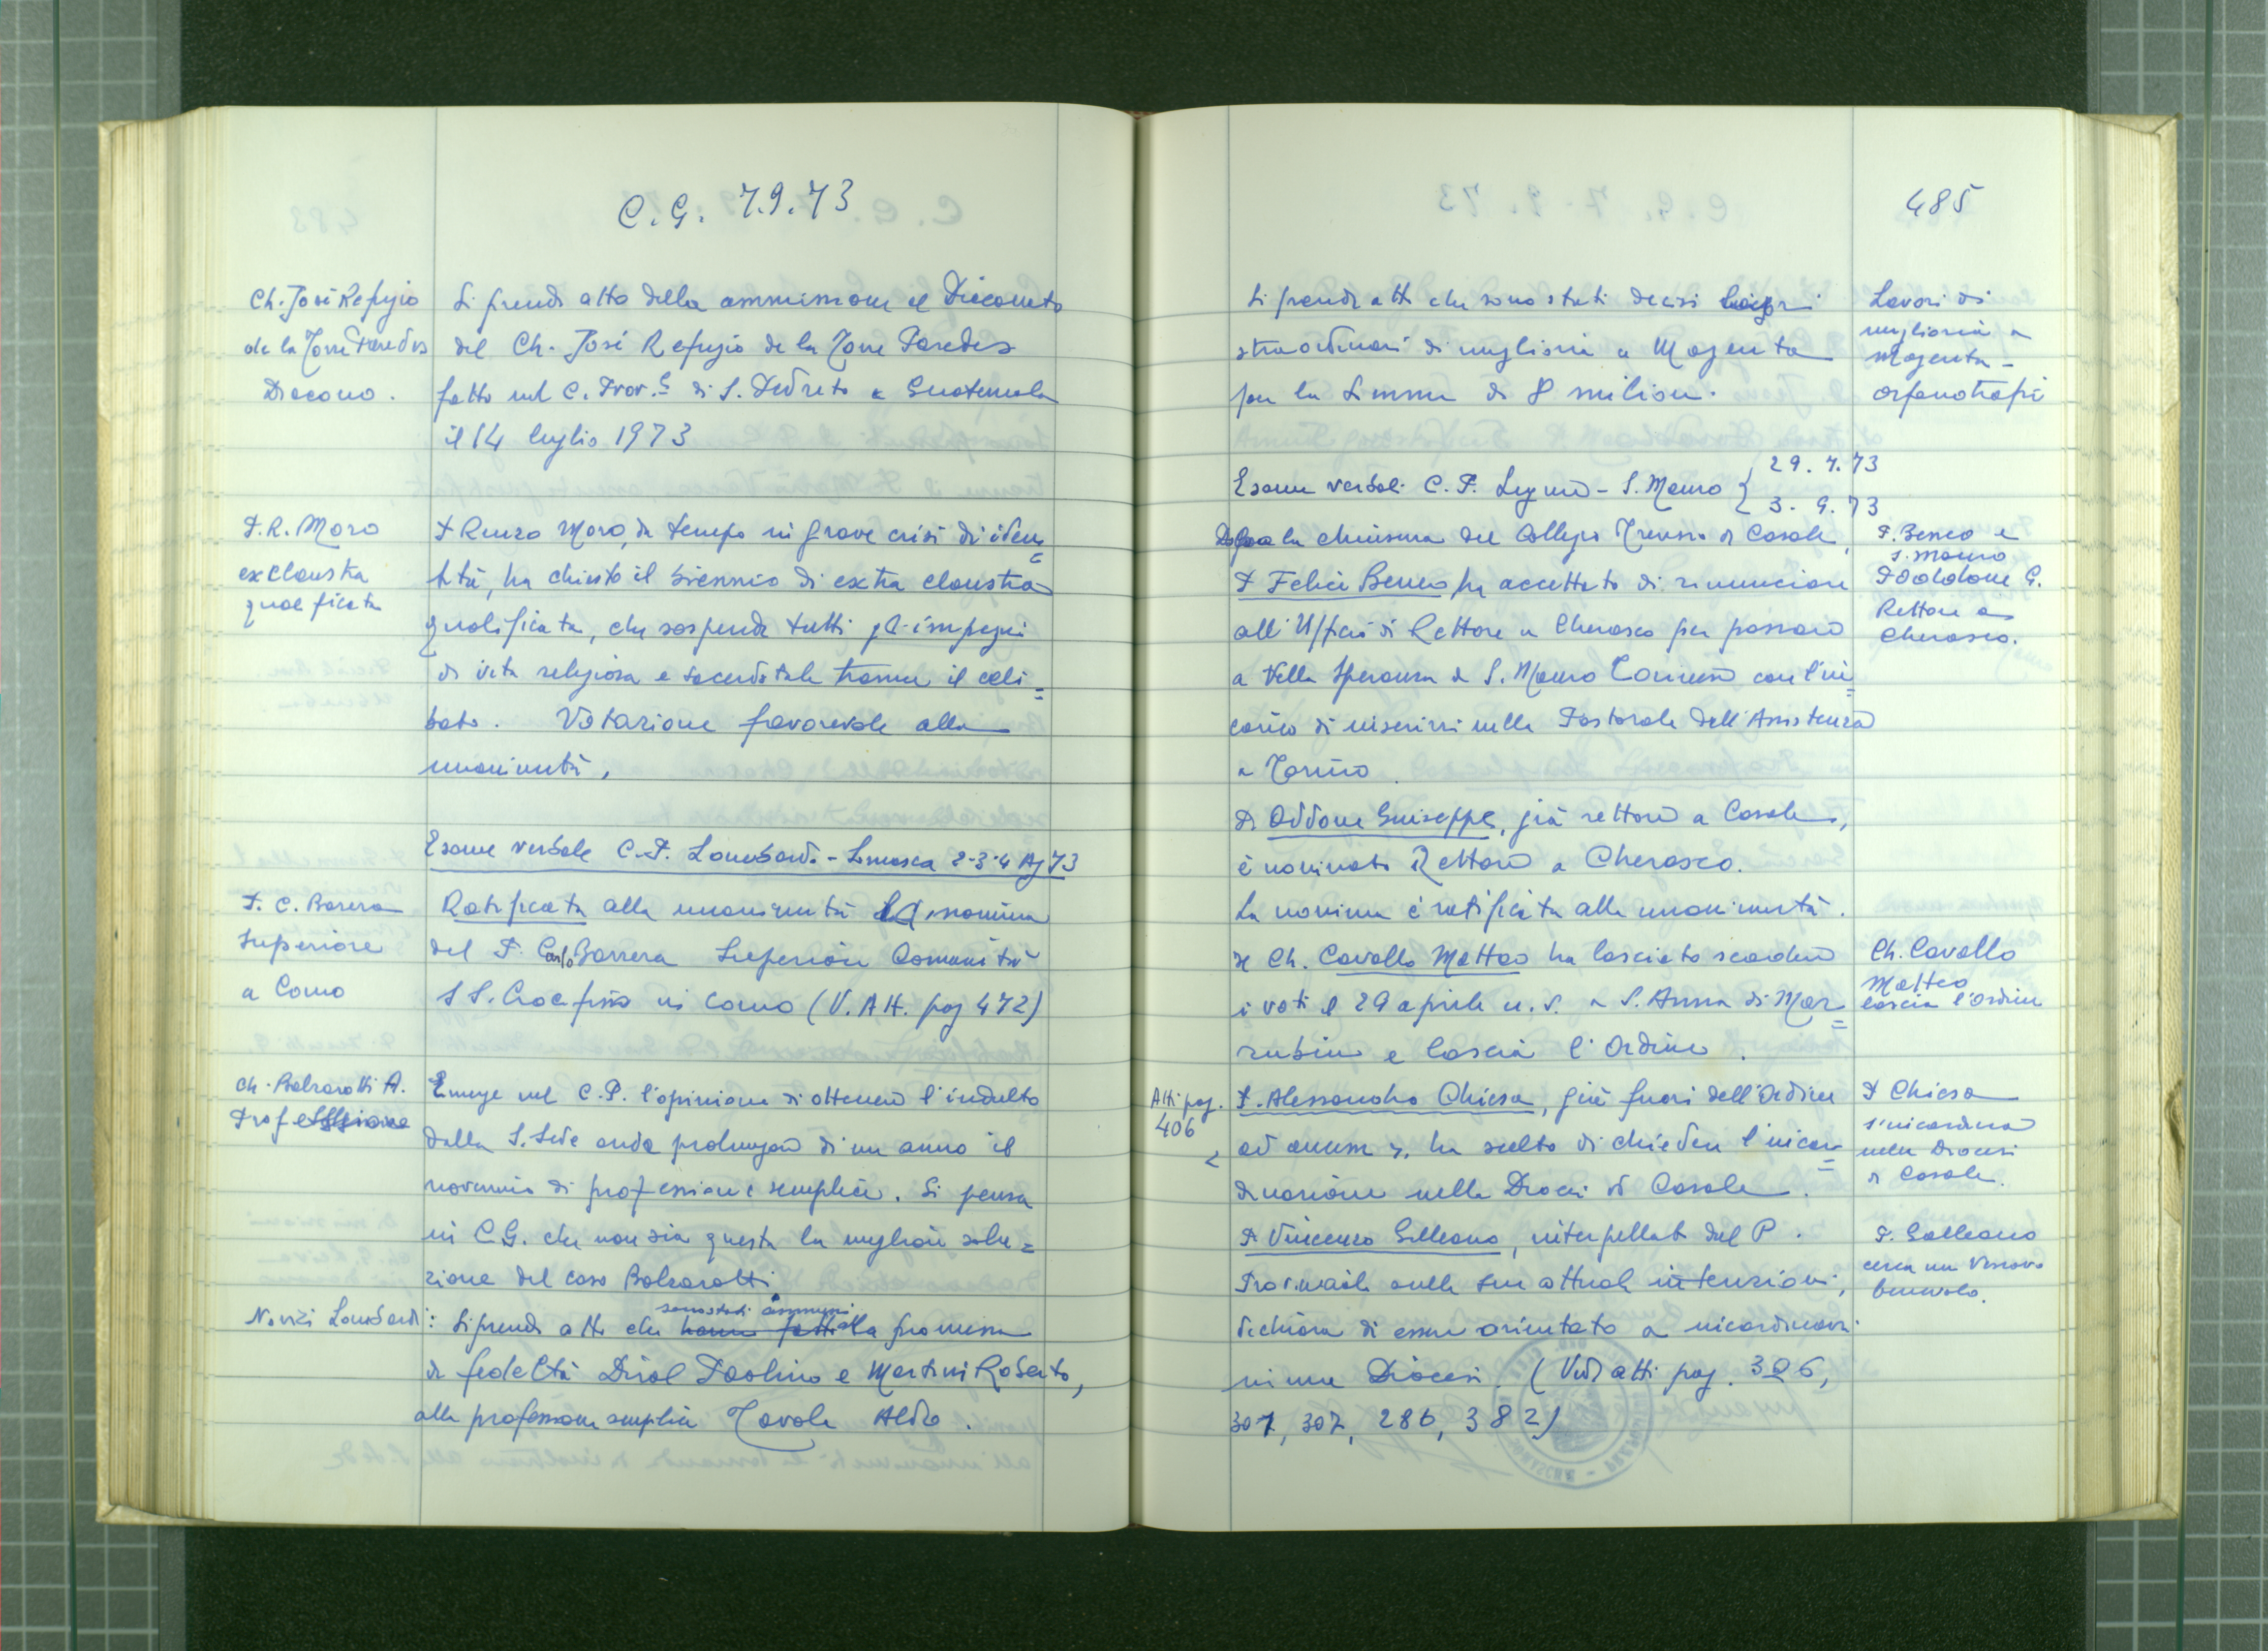 C. G. 7.9.73
Ch. José Refugio
de la Torre Paredes
Diacono.
Si prende atto della ammissione al Diaconato
del Ch. José Refugio de la Torre Paredes
fatto nel C. Prov.le di S. Pedrito a Guatemala
il 14 luglio 1973
P. R. Moro
exclaustra
qualificata
P Renzo Moro, da tempo in grave crisi di iden=
tità, ha chiesto il biennio di extra claustra
qualificata, che sospende tutti gli impegni
di vita religiosa e sacerdotale tranne il celi=
bato. Votazione favorevole alla
unanimità.
Esame verbale C. P. Lombardo - Somasca 2-3-4 Ag 73
P. C. Barera
Superiore
a Como
Ratificata alla unanimità la nomina
del P. Carlo Barrera Superiore Comunità
SS. Crocifisso in Como (V. Att. pag 472)
Ch. Balzarotti A.
Professione
Emerge nel C. P. l'opinione di ottenere l'indulto
dalla S. Sede onde prolungare di un anno il
novennio di professione semplice. Si pensa
in C.G. che non sia questa la migliore solu=
zione del caso Balzarotti.
Novizi Lombardi:
sono stati ammessi
Si prende atto che hanno fatto alla promessa
di fedeltà Diral Paolino e Martini Roberto,
alla professione semplice Tavola Aldo.
485
Si prende atto che sono stati decisi lavori
straordinari di miglioria a Magenta
per la somma di 8 milioni.
Lavori di
miglioria a
Magenta -
orfanotrofi
Esame verbali C. P. Ligure - S. Mauro { 29. 7. 73
3. 9. 73
Dopo la chiusura del Collegio Trevisio di Casale,
P Felice Beneo ha accettato di rinunciare
all'Ufficio di Rettore a Cherasco per passare
a Villa Speranza di S. Mauro Torinese con l'in=
carico di inserirsi nella Pastorale dell'Assistenza
a Torino.
P. Beneo a
S. Mauro
P Oddone G.
Rettore a
Cherasco.
P. Oddone Giuseppe, già rettore a Casale,
è nominato Rettore a Cherasco.
La nomina è ratificata alla unanimità.
Il Ch. Cavallo Matteo ha lasciato scadere
i voti il 29 aprile u. s. a S. Anna di Mar=
rubiu e lascia l'Ordine.
Ch. Cavallo
Matteo
lascia l'Ordine
Atti pag.
406
P. Alessandro Chiesa, già fuori dell'Ordine
ad annum, ha scelto di chiedere l'incar=
dinazione nella Diocesi di Casale.
P Chiesa
s'incardina
nella Diocesi
di Casale.
P. Vincenzo Galleano, interpellato dal P.
Provinciale sulle sue attuali intenzioni,
dichiara di essere orientato a incardinarsi
in una Diocesi. (Vedi atti pag. 306,
307, 307, 286, 382)
P. Galleano
cerca un Vescovo
benevolo.